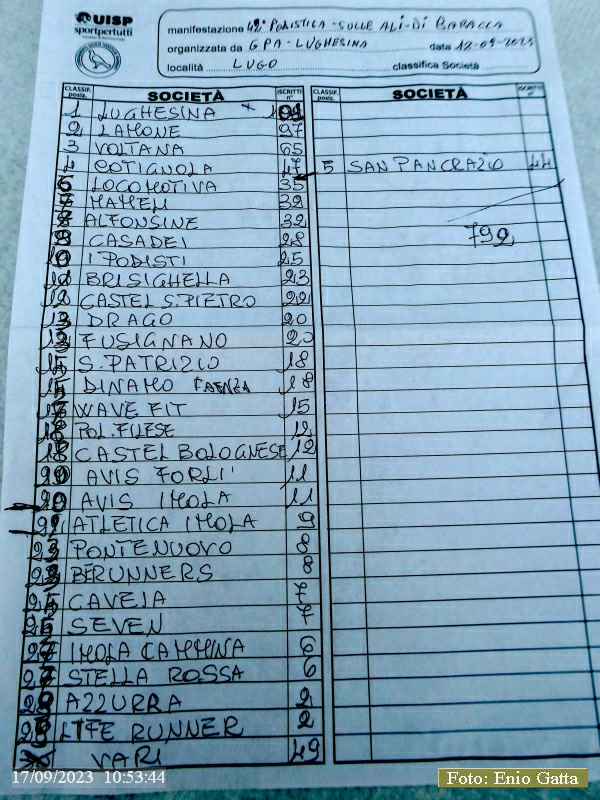 UISP
sportpertutti
manifestazione 42ª PODISTICA - SULLE ALI - DI BARACCA
organizzata da GPA - LUGHESINA data
località LUGO classifica Società
CLASSIF. posiz. SOCIETÀ ISCRITTI n°
CLASSIF. posiz. SOCIETÀ ISCRITTI n°
1 LUGHESINA
2 LAMONE 97
3 VOLTANA 65
4 COTIGNOLA 47
5 SAN PANCRAZIO 44
6 LOCOMOTIVA 35
MAMELI 32
ALFONSINE 32
792
9 CASADEI 28
10 I PODISTI 25
BRISIGHELLA 23
12 CASTEL S. PIETRO 22
13 DRAGO 20
13 FUSIGNANO 20
15 S. PATRIZIO 18
15 DINAMO FAENZA 18
17 WAVE FIT 15
18 POL. FILESE 12
18 CASTEL BOLOGNESE 12
20 AVIS FORLI' 11
20 AVIS IMOLA 11
ATLETICA IMOLA 9
23 PONTENUOVO 8
23 BERUNNERS 8
25 CAVEJA 7
25 SEVEN 7
27 IMOLA CAMMINA 6
27 STELLA ROSSA 6
AZZURRA 2
LIFE RUNNER 2
VARI 49
17/09/2023 10:53:44
Foto: Enio Gatta